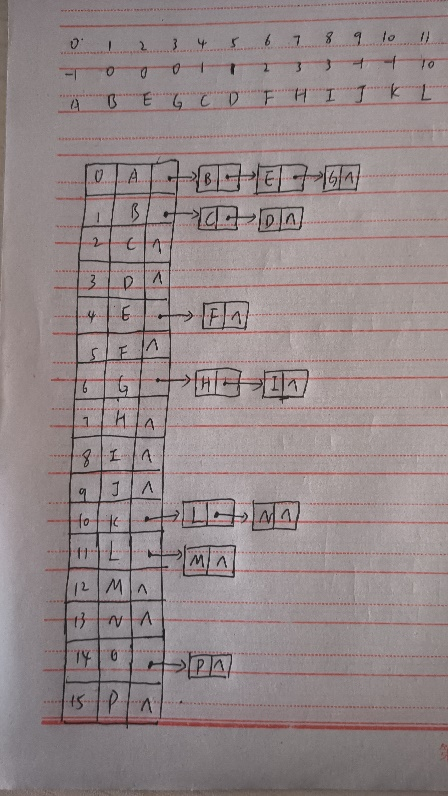 0 1 2 3 4 5 6 7 8 9 10 11
-1 0 0 0 1 1 2 3 3 -1 -1 10
A B E G C D F H I J K L
0 A B E G ∧
1 B C D ∧
2 C ∧
3 D ∧
4 E F ∧
5 F ∧
6 G H I ∧
7 H ∧
8 I ∧
9 J ∧
10 K L N ∧
11 L M ∧
12 M ∧
13 N ∧
14 O P ∧
15 P ∧